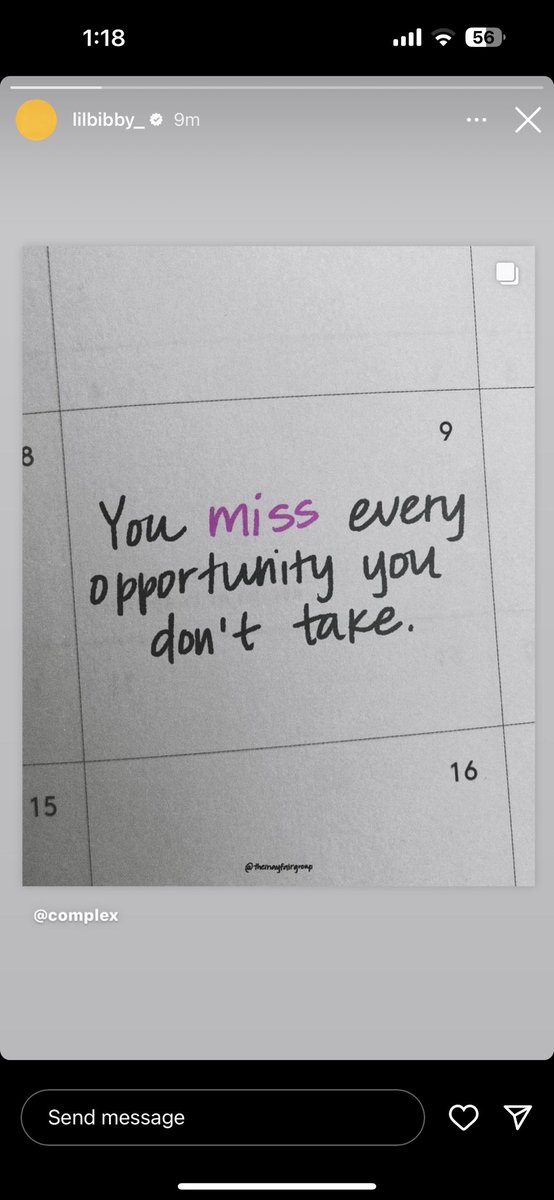 1:18
56
lilbibby_ 9m
9
8
You miss every
opportunity you
don't take.
16
15
@themayfairgroup
@complex
Send message